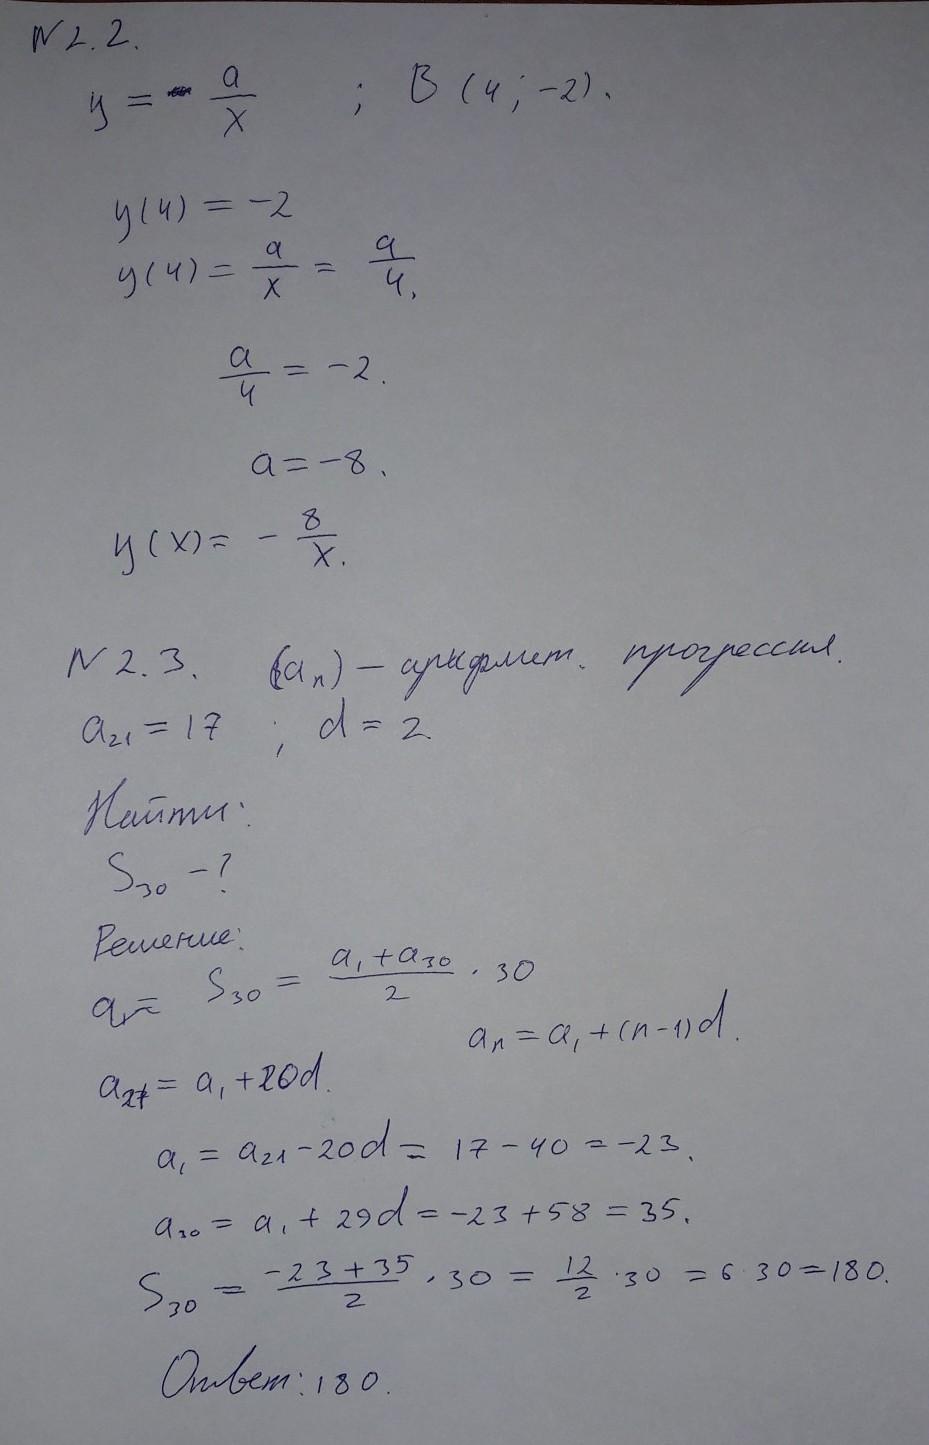 N 2.2.
y = a/x ; B (4; -2).
y(4) = -2
y(4) = a/x = a/4.
a/4 = -2.
a = -8.
y(x) = - 8/x.
N 2.3. (aₙ) – арифмет. прогрессия.
a₂₁ = 17 ; d = 2.
Найти:
S₃₀ - ?
Решение:
a₁= S₃₀ = (a₁ + a₃₀)/2 · 30
aₙ = a₁ + (n-1)d.
a₂₁ = a₁ + 20d.
a₁ = a₂₁ - 20d = 17 - 40 = -23.
a₃₀ = a₁ + 29d = -23 + 58 = 35.
S₃₀ = (-23 + 35)/2 · 30 = 12/2 · 30 = 6·30 = 180.
Ответ: 180.